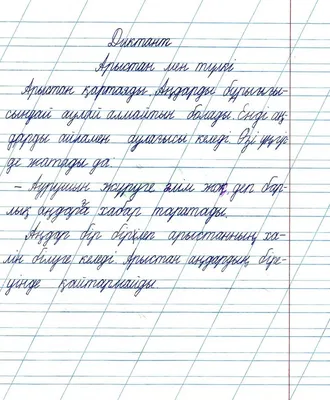 Диктант
Арыстан мен түлкі
Арыстан қартаяды. Аңдарды бұрынғы-
сындай аулай алмайтын болады. Енді аң-
дарды айламен аулағысы келеді. Өзі үңгір-
де жатады да:
- Ауырмын жүруге әлім жоқ, деп бар-
лық аңдарға хабар таратады.
Аңдар бір бірлеп арыстанның ха-
лін білуге келеді. Арыстан аңдардың біре-
уінде қайтармайды.